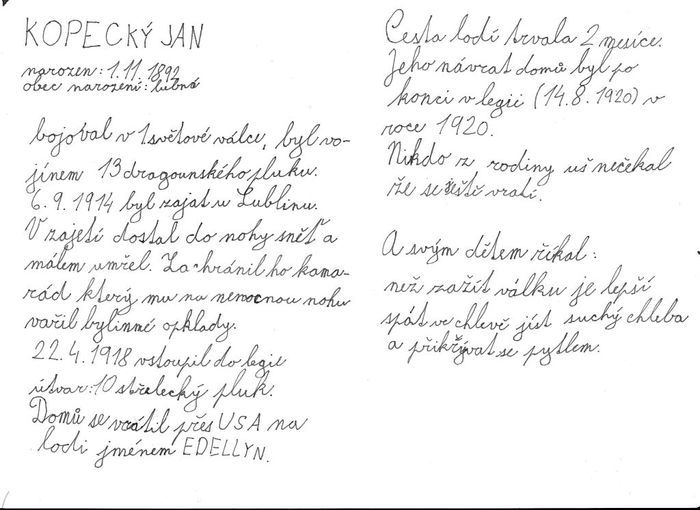 KOPECKÝ JAN
narozen: 1.11.1892
obec narození: Libná
bojoval v 1světové válce, byl vo-
jínem 13dragounského pluku.
6.9.1914 byl zajat u Lublinu.
V zajetí dostal do nohy sněť a
málem umřel. Zachránil ho kama-
rád který mu na nemocnou nohu
vařil bylinné opklady.
22.4.1918 vstoupil do legií
útvar:10 střelecký pluk.
Domů se vrátil přes USA na
lodi jménem EDELLYN.
Cesta lodí trvala 2 mesíce.
Jeho návrat domů byl po
konci v legii (14.8.1920) v
roce 1920.
Nikdo z rodiny uš nečekal
že se ještě vratí.
A svým dětem říkal:
než zažít válku je lepší
spát ve chlevě jíst suchý chleba
a přikrývat se pytlem.